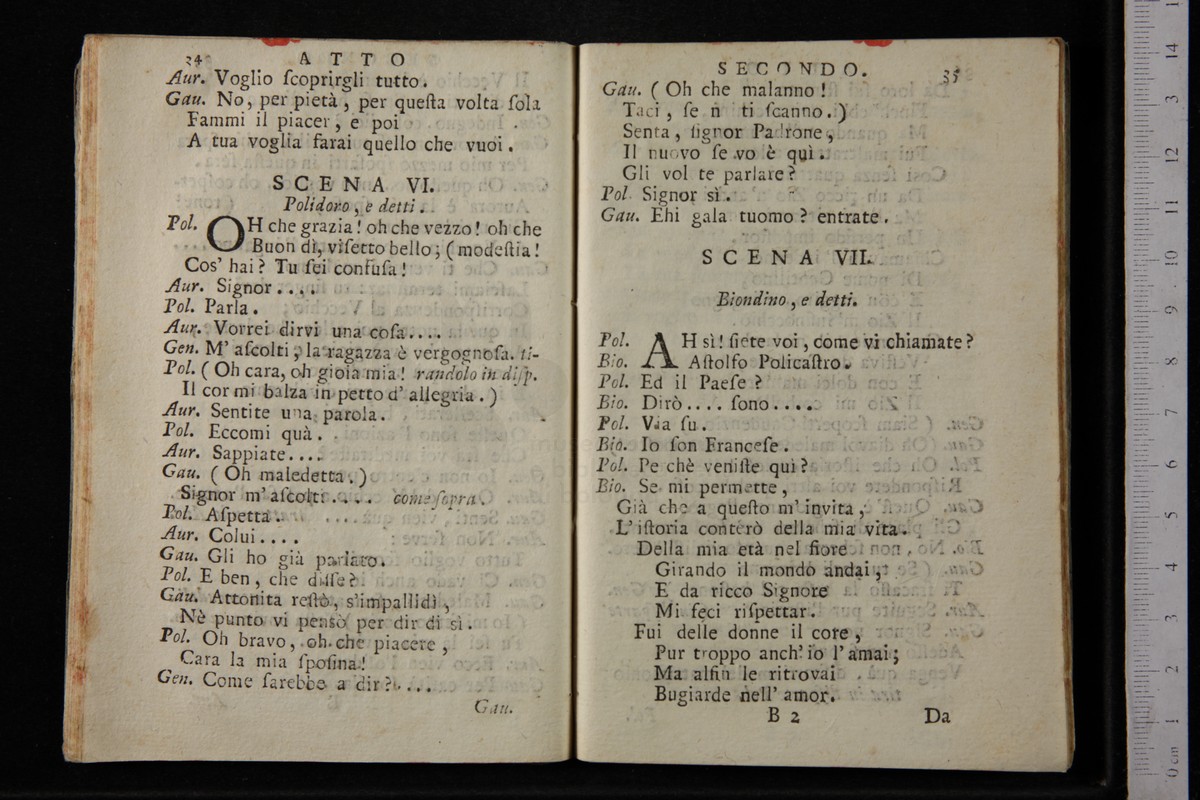 34 A T T O
Aur. Voglio ſcoprirgli tutto.
Gau. No, per pietà, per queſta volta ſola
Fammi il piacer, e poi
A tua voglia farai quello che vuoi.
S C E N A VI.
Polidoro, e detti.
Pol. OH che grazia! oh che vezzo! oh che
Buon dì, viſetto bello; (modeſtia!
Cos' hai? Tu ſei confuſa!
Aur. Signor....
Pol. Parla.
Aur. Vorrei dirvi una coſa....
Gen. M' aſcolti, la ragazza è vergognoſa. ti-
Pol. (Oh cara, oh gioia mia! randolo in diſp.
Il cor mi balza in petto d' allegria.)
Aur. Sentite una parola.
Pol. Eccomi quà.
Aur. Sappiate....
Gau. (Oh maledetta.)
Signor m' aſcolti.... come ſopra.
Pol. Aſpetta.
Aur. Colui....
Gau. Gli ho già parlato.
Pol. E ben, che diſſe?
Gau. Attonita reſtò, s'impallidì,
Nè punto vi pensò per dir di sì.
Pol. Oh bravo, oh che piacere,
Cara la mia ſpoſina!
Gen. Come ſarebbe a dir?....
Gau.
S E C O N D O. 35
Gau. (Oh che malanno!
Taci, ſe n ti ſcanno.)
Senta, ſignor Padrone,
Il nuovo ſe vo è quì.
Gli vol te parlare?
Pol. Signor sì.
Gau. Ehi gala tuomo? entrate.
S C E N A VII.
Biondino, e detti.
Pol. AH sì! ſiete voi, come vi chiamate?
Bio. Aſtolfo Policaſtro.
Pol. Ed il Paeſe?
Bio. Dirò.... ſono....
Pol. Via ſu.
Bio. Io ſon Franceſe.
Pol. Pe chè veniſte quì?
Bio. Se mi permette,
Già che a queſto m' invita,
L' iſtoria conterò della mia vita.
Della mia età nel fiore
Girando il mondo andai,
E da ricco Signore
Mi feci riſpettar.
Fui delle donne il core,
Pur troppo anch' io l' amai;
Ma alfin le ritrovai
Bugiarde nell' amor.
B 2 Da